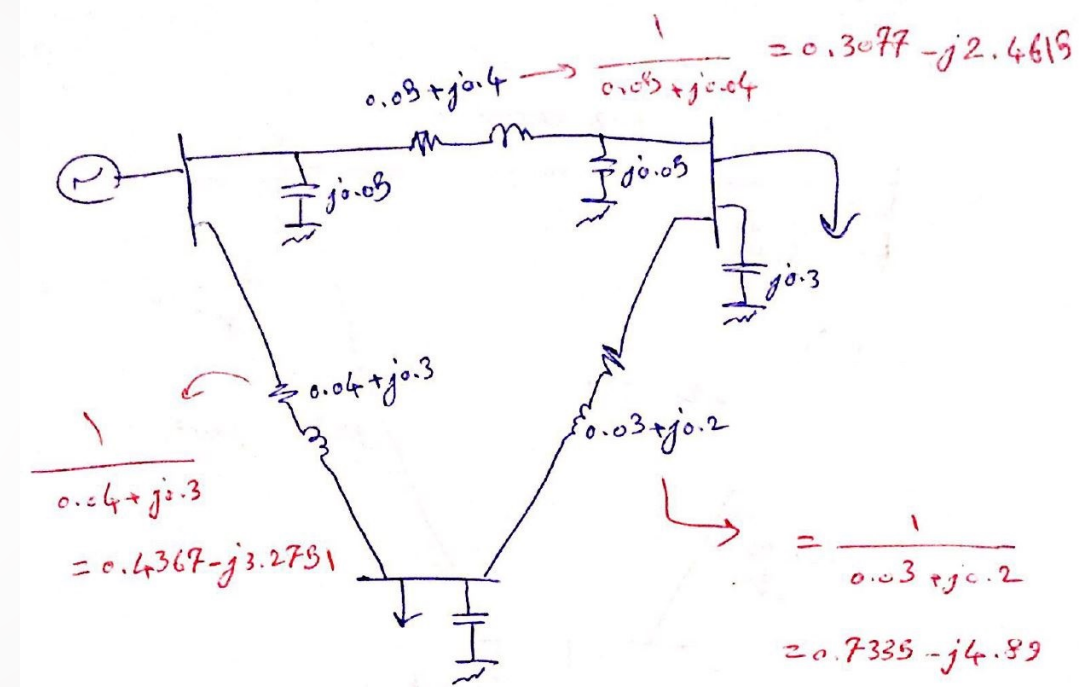 1
0.05+j0.4 → 0.05+j0.04 = 0.3077-j2.4615
j0.05
j0.05
j0.3
0.04+j0.3
0.03+j0.2
1
0.04+j0.3
= 0.4367-j3.2751
= 1
0.03+j0.2
= 0.7335-j4.89